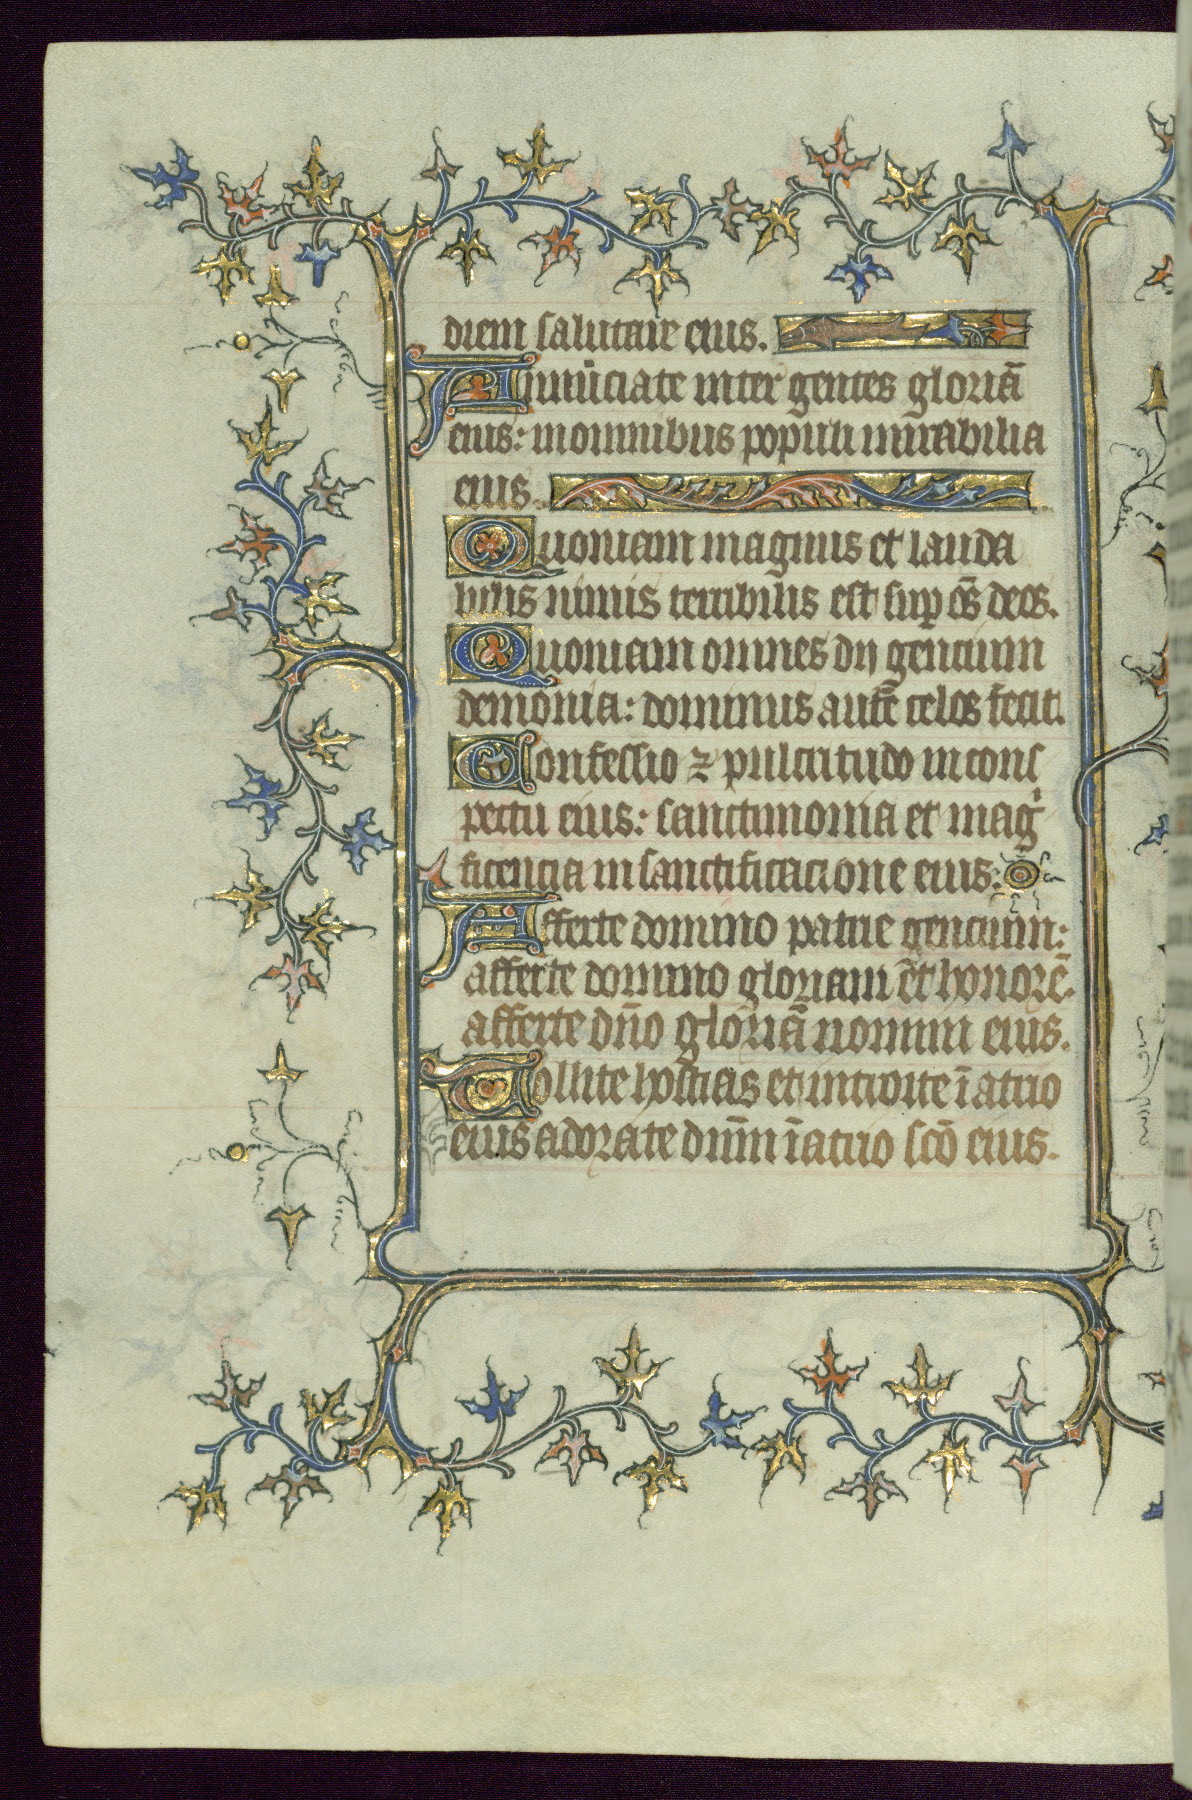 diem salutare eius.
Annūciate inter gentes gloriā
eius: in omnibus populi mirabilia
eius.
Quoniam magnus et lauda
bilis nimis terribilis est sup oſ̄ deos.
Quoniam omnes dij gencium
demonia: dominus autē celos fecit.
Confessio ⁊ pulcritudo in cons
pectu eius: sanctimonia et magͥ
ficencia in sanctificacione eius:
Afferte domino patrie gencium:
afferte domino gloriam et honorē.
afferte dn̄o gloriā nomini eius.
Tollite hostias et introite ī atrio
eius adorate dnm̄ ī atrio sc̄o eius.